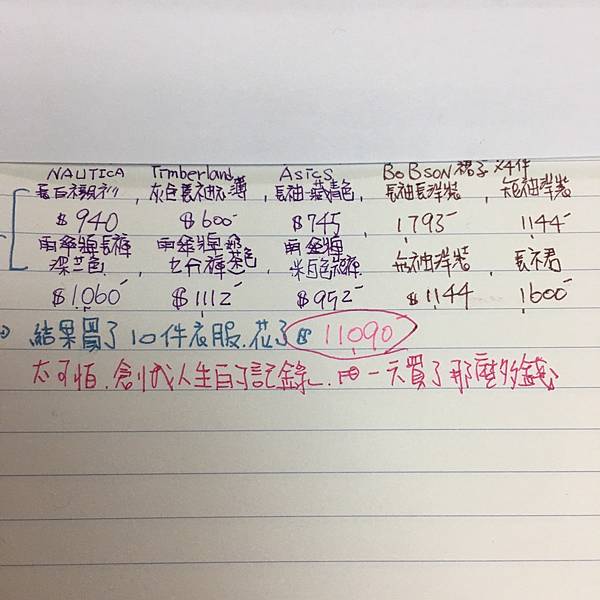 NAUTICA Timberland Asics BoBSON裙子×4件
長白襯衫, 灰色長袖衣薄, 長袖-藏青色, 長袖長洋裝, 短袖洋裝
$940 $600- $745 1793- 1144-
雨傘牌長褲 雨傘牌 雨傘牌
深藍色, 七分褲茶色, 米白色短褲 無袖洋裝, 長裙
$1060- $1112- $952- $1144 1600-
結果買了10件衣服,花了$11090
太可怕,創我人生百了記錄, 一天買了那麼多錢